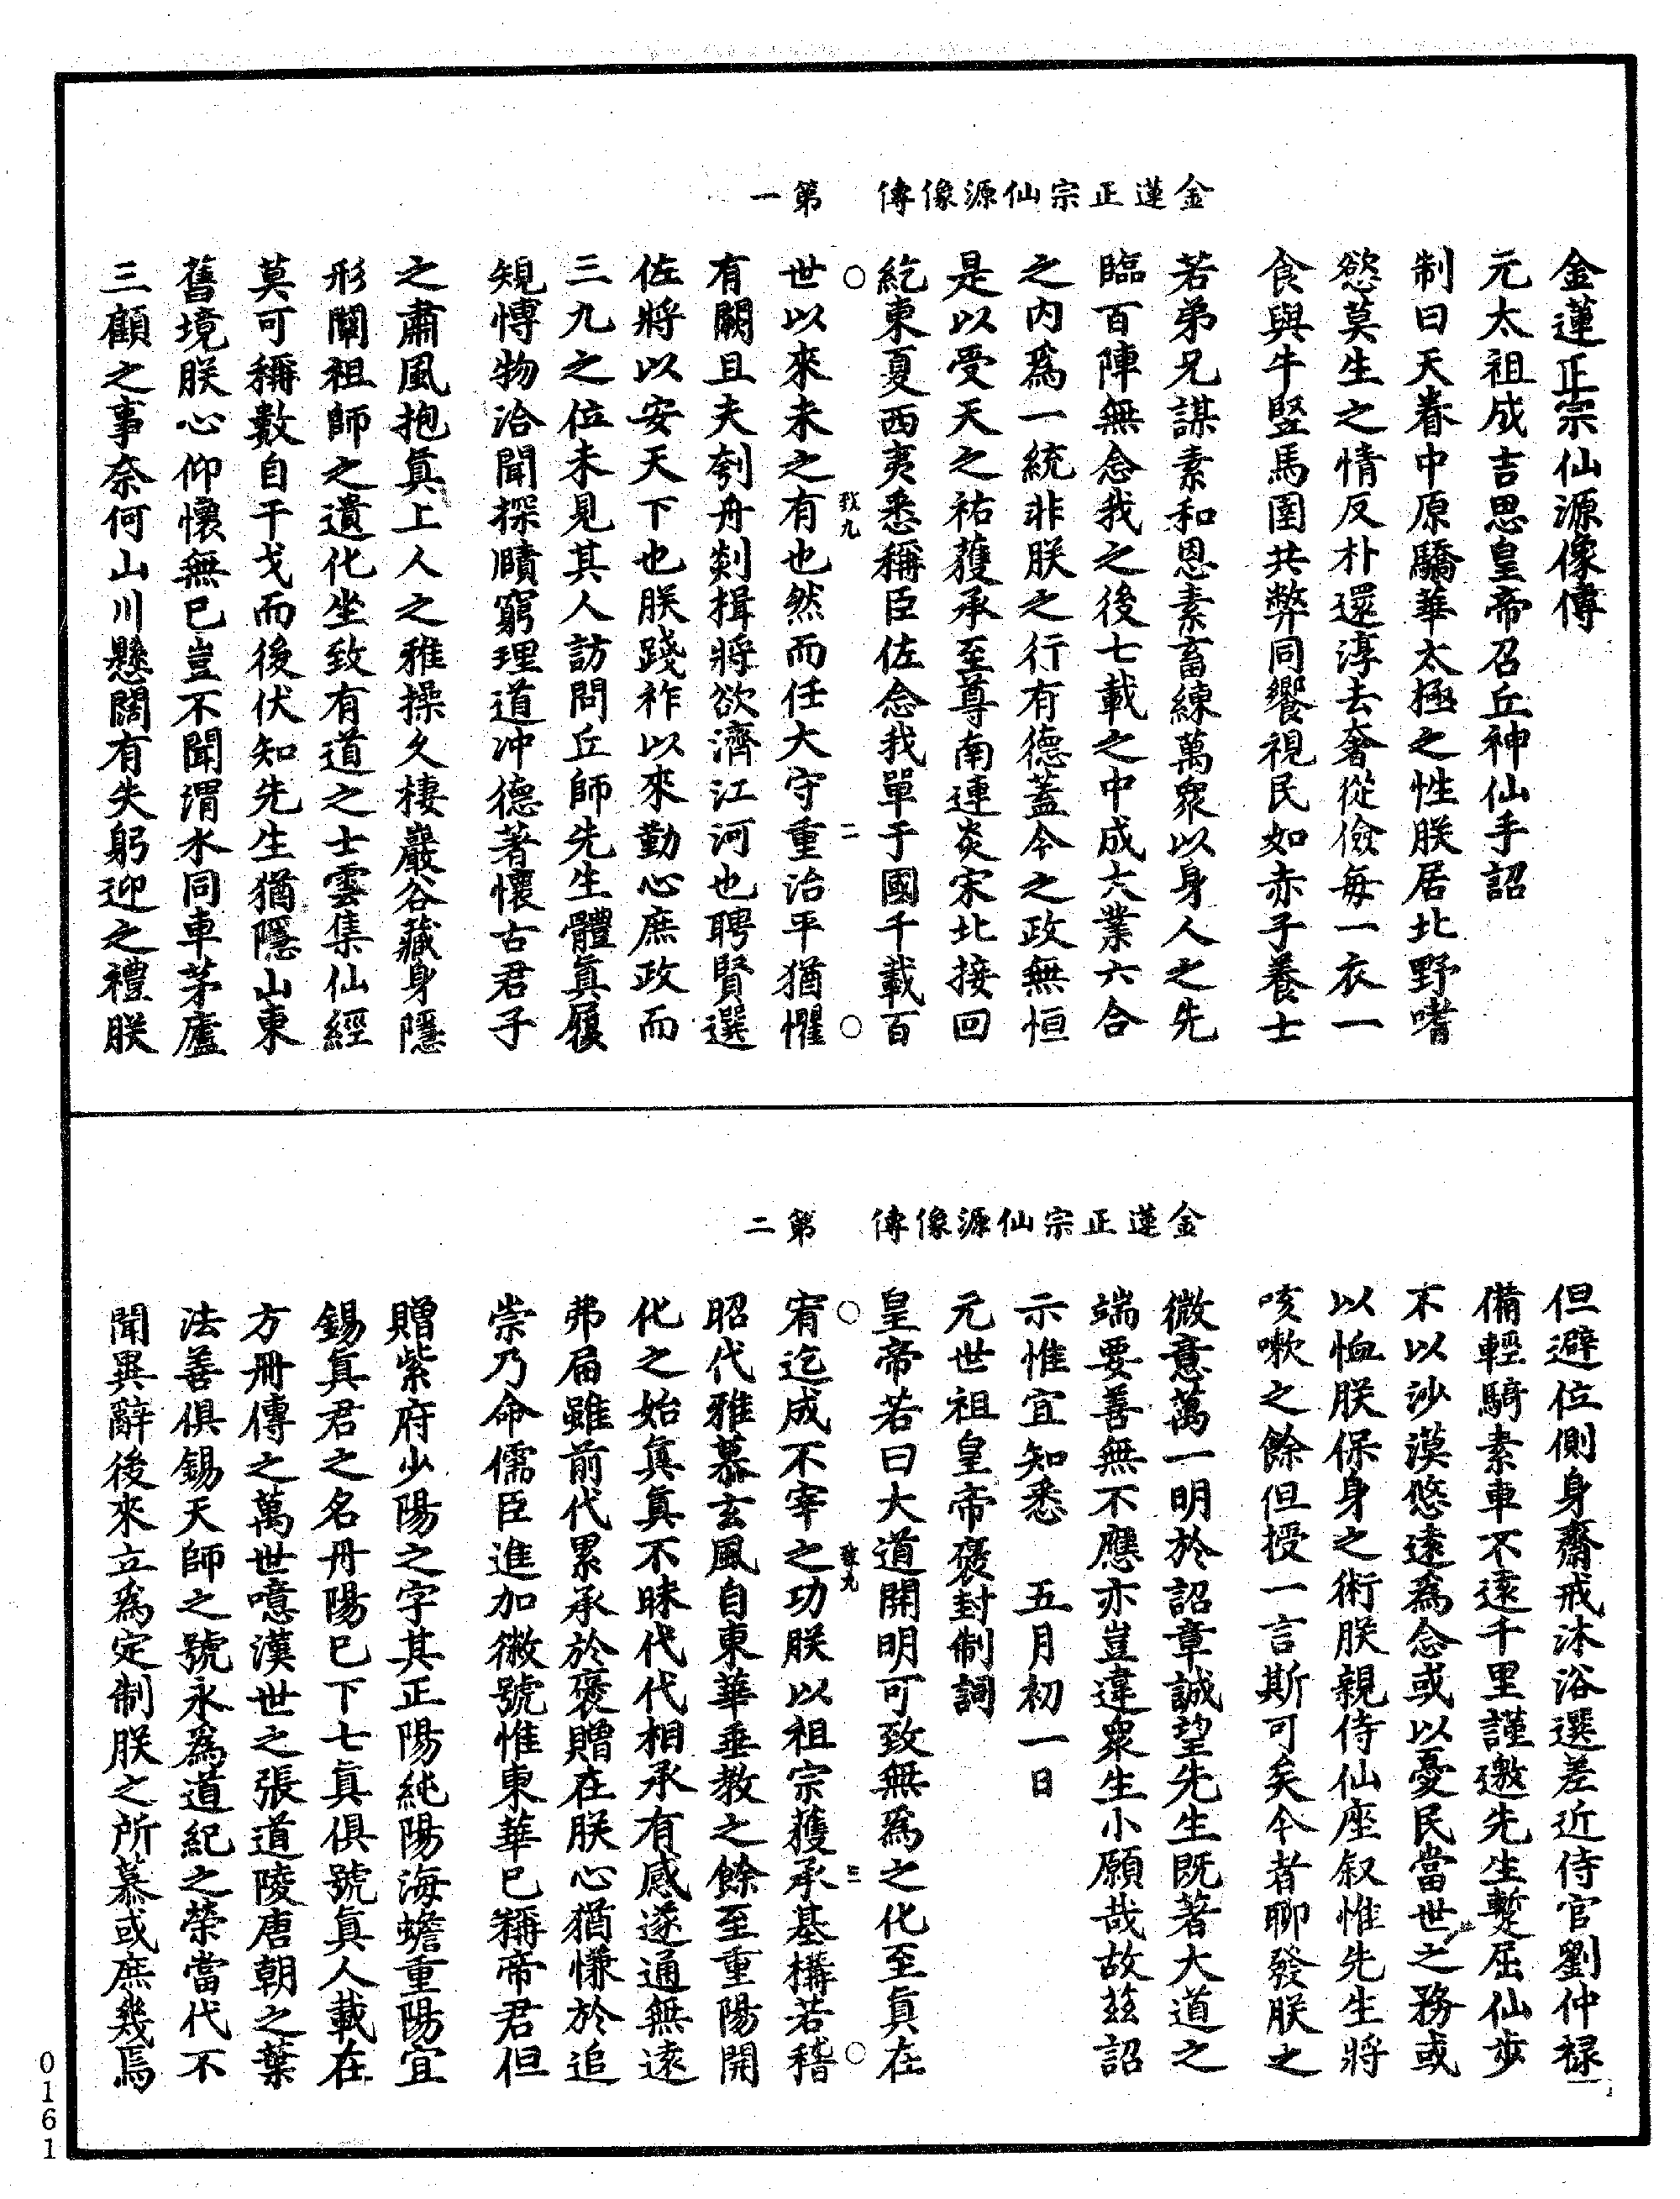 金蓮正宗仙源像傳　第一
金蓮正宗仙源像傳
元太祖成吉思皇帝召丘神仙手詔
制曰天眷中原驕華太極之性朕居北野嗜
慾莫生之情反朴還淳去奢從儉每一衣一
食與牛竪馬圉共弊同饗視民如赤子養士
若弟兄謀素和恩素畜練萬衆以身人之先
臨百陣無念我之後七載之中成大業六合
之內爲一統非朕之行有德蓋今之政無恒
是以受天之祐蒦承至尊南連炎宋北接回
紇東夏西夷悉稱臣佐念我單于國千載百
世以來未之有也然而任大守重治平猶懼
有闕且夫刳舟剡楫將欲濟江河也聘賢選
佐將以安天下也朕踐祚以來勤心庶政而
三九之位未見其人訪問丘師先生體眞履
䂓愽物洽聞探賾窮理道冲德著懷古君子
之肅風抱眞上人之雅操久棲巖谷藏身隱
形闡祖師之遺化坐致有道之士雲集仙經
莫可稱數自干戈而後伏知先生猶隱山東
舊境朕心仰懷無已豈不聞渭水同車茅廬
三顧之事奈何山川懸闊有失躬迎之禮朕
金蓮正宗仙源像傳　第二
但避位側身齋戒沐浴選差近侍官劉仲祿
備輕騎素車不遠千里謹邀先生蹔屈仙步
不以沙漠悠遠爲念或以憂民當世之務或
以恤朕保身之術朕親侍仙座叙惟先生將
咳嗽之餘但授一言斯可矣今者聊發朕之
微意萬一明於詔章誠望先生既著大道之
端要善無不應亦豈違衆生小願哉故茲詔
示惟宜知悉　五月初一日
元世祖皇帝褒封制詞
皇帝若曰大道開明可致無爲之化至眞在
宥迄成不宰之功朕以祖宗獲承基構若稽
昭代雅慕玄風自東華垂教之餘至重陽開
化之始眞眞不昧代代相承有感遂通無遠
弗屆雖前代累承於褒贈在朕心猶慊於追
崇乃命儒臣進加徽號惟東華已稱帝君但
贈紫府少陽之字其正陽純陽海蟾重陽宜
錫眞君之名丹陽已下七眞俱號眞人載在
方冊傳之萬世噫漢世之張道陵唐朝之葉
法善俱錫天師之號永爲道紀之榮當代不
聞異辭後來立爲定制朕之所慕或庶幾焉
0161